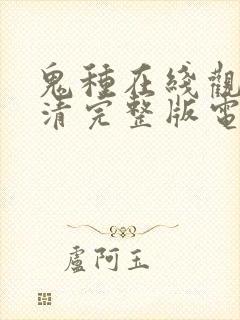 鬼種在綫觀
清完整版電
盧阿玉